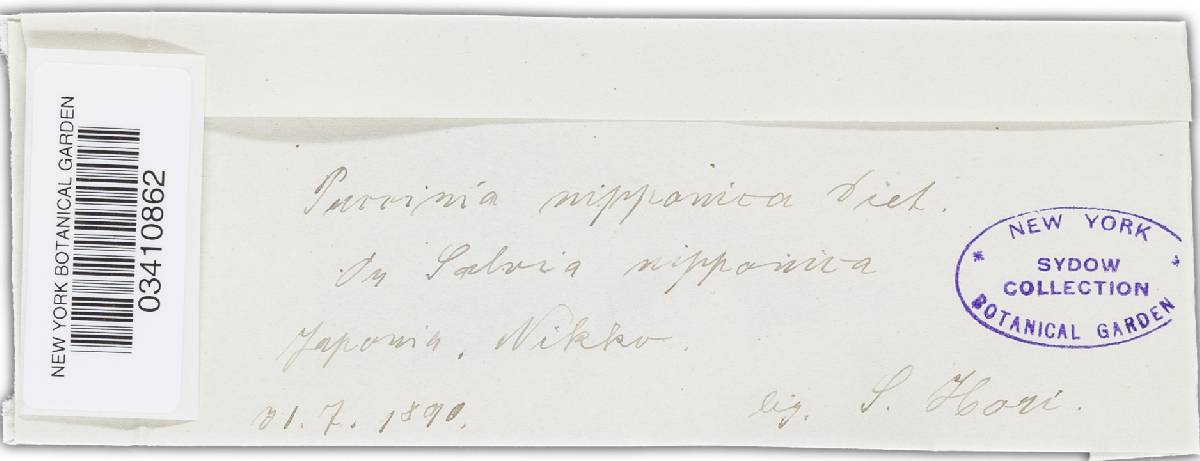 NEW YORK BOTANICAL GARDEN
03410862
Puccinia nipponica Diet.
On Salvia nipponica
Japonia, Nikko.
31. 7. 1890.
lig. S. Hori.
NEW YORK
SYDOW
COLLECTION
BOTANICAL GARDEN